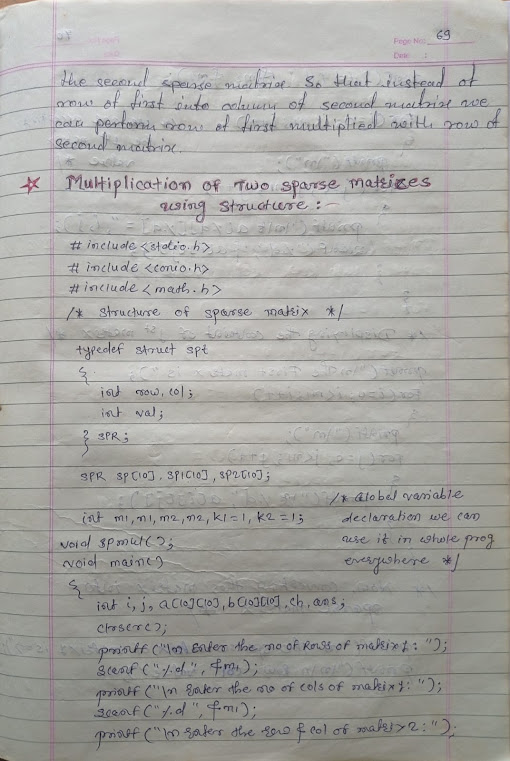 Page No: 69
Date :
the second sparse matrix. So that instead of
row of first into column of second matrix we
can perform row of first multiplied with row of
second matrix.
☆ Multiplication of Two sparse matrixes
using structure :-
# include <stdio.h>
# include <conio.h>
# include <math.h>
/* structure of sparse matrix */
typedef struct spt
{
int row, col;
int val;
} SPR;
SPR SP[10], SP1[10], SP2[10];
/* Global variable
int m1, n1, m2, n2, k1=1, k2=1; declaration we can
void spmul(); use it in whole prog
void main() everywhere */
{
int i, j, a[10][10], b[10][10], ch, ans;
clrscr();
printf ("\n Enter the no of Rows of matrix1: ");
scanf ("%d", &m1);
printf ("\n Enter the no of cols of matrix1: ");
scanf ("%d", &n1);
printf ("\n Enter the row & col of matrix 2: ");